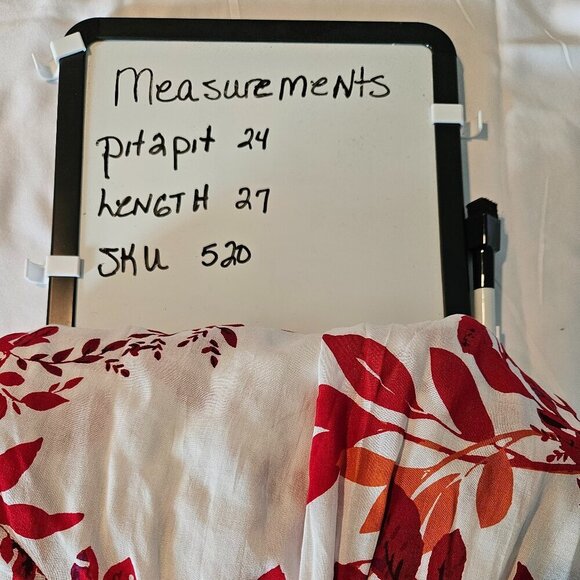 Measurements
pit2pit 24
LENGTH 27
SKU 520